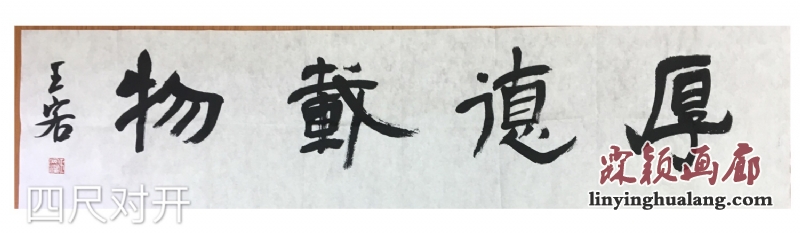 厚德載物
王容
四尺对开
霖颖画廊
linyinghualang.com